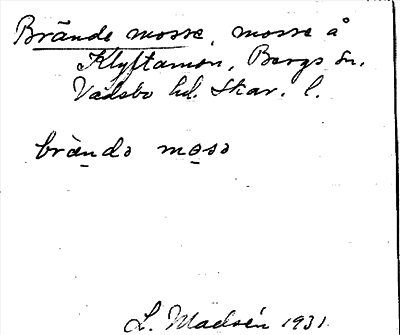 Brände mosse, mosse å
Klyftamon, Bergs sn,
Vadsbo hd. Skar. l.
brändə mosə
L. Madsén 1931